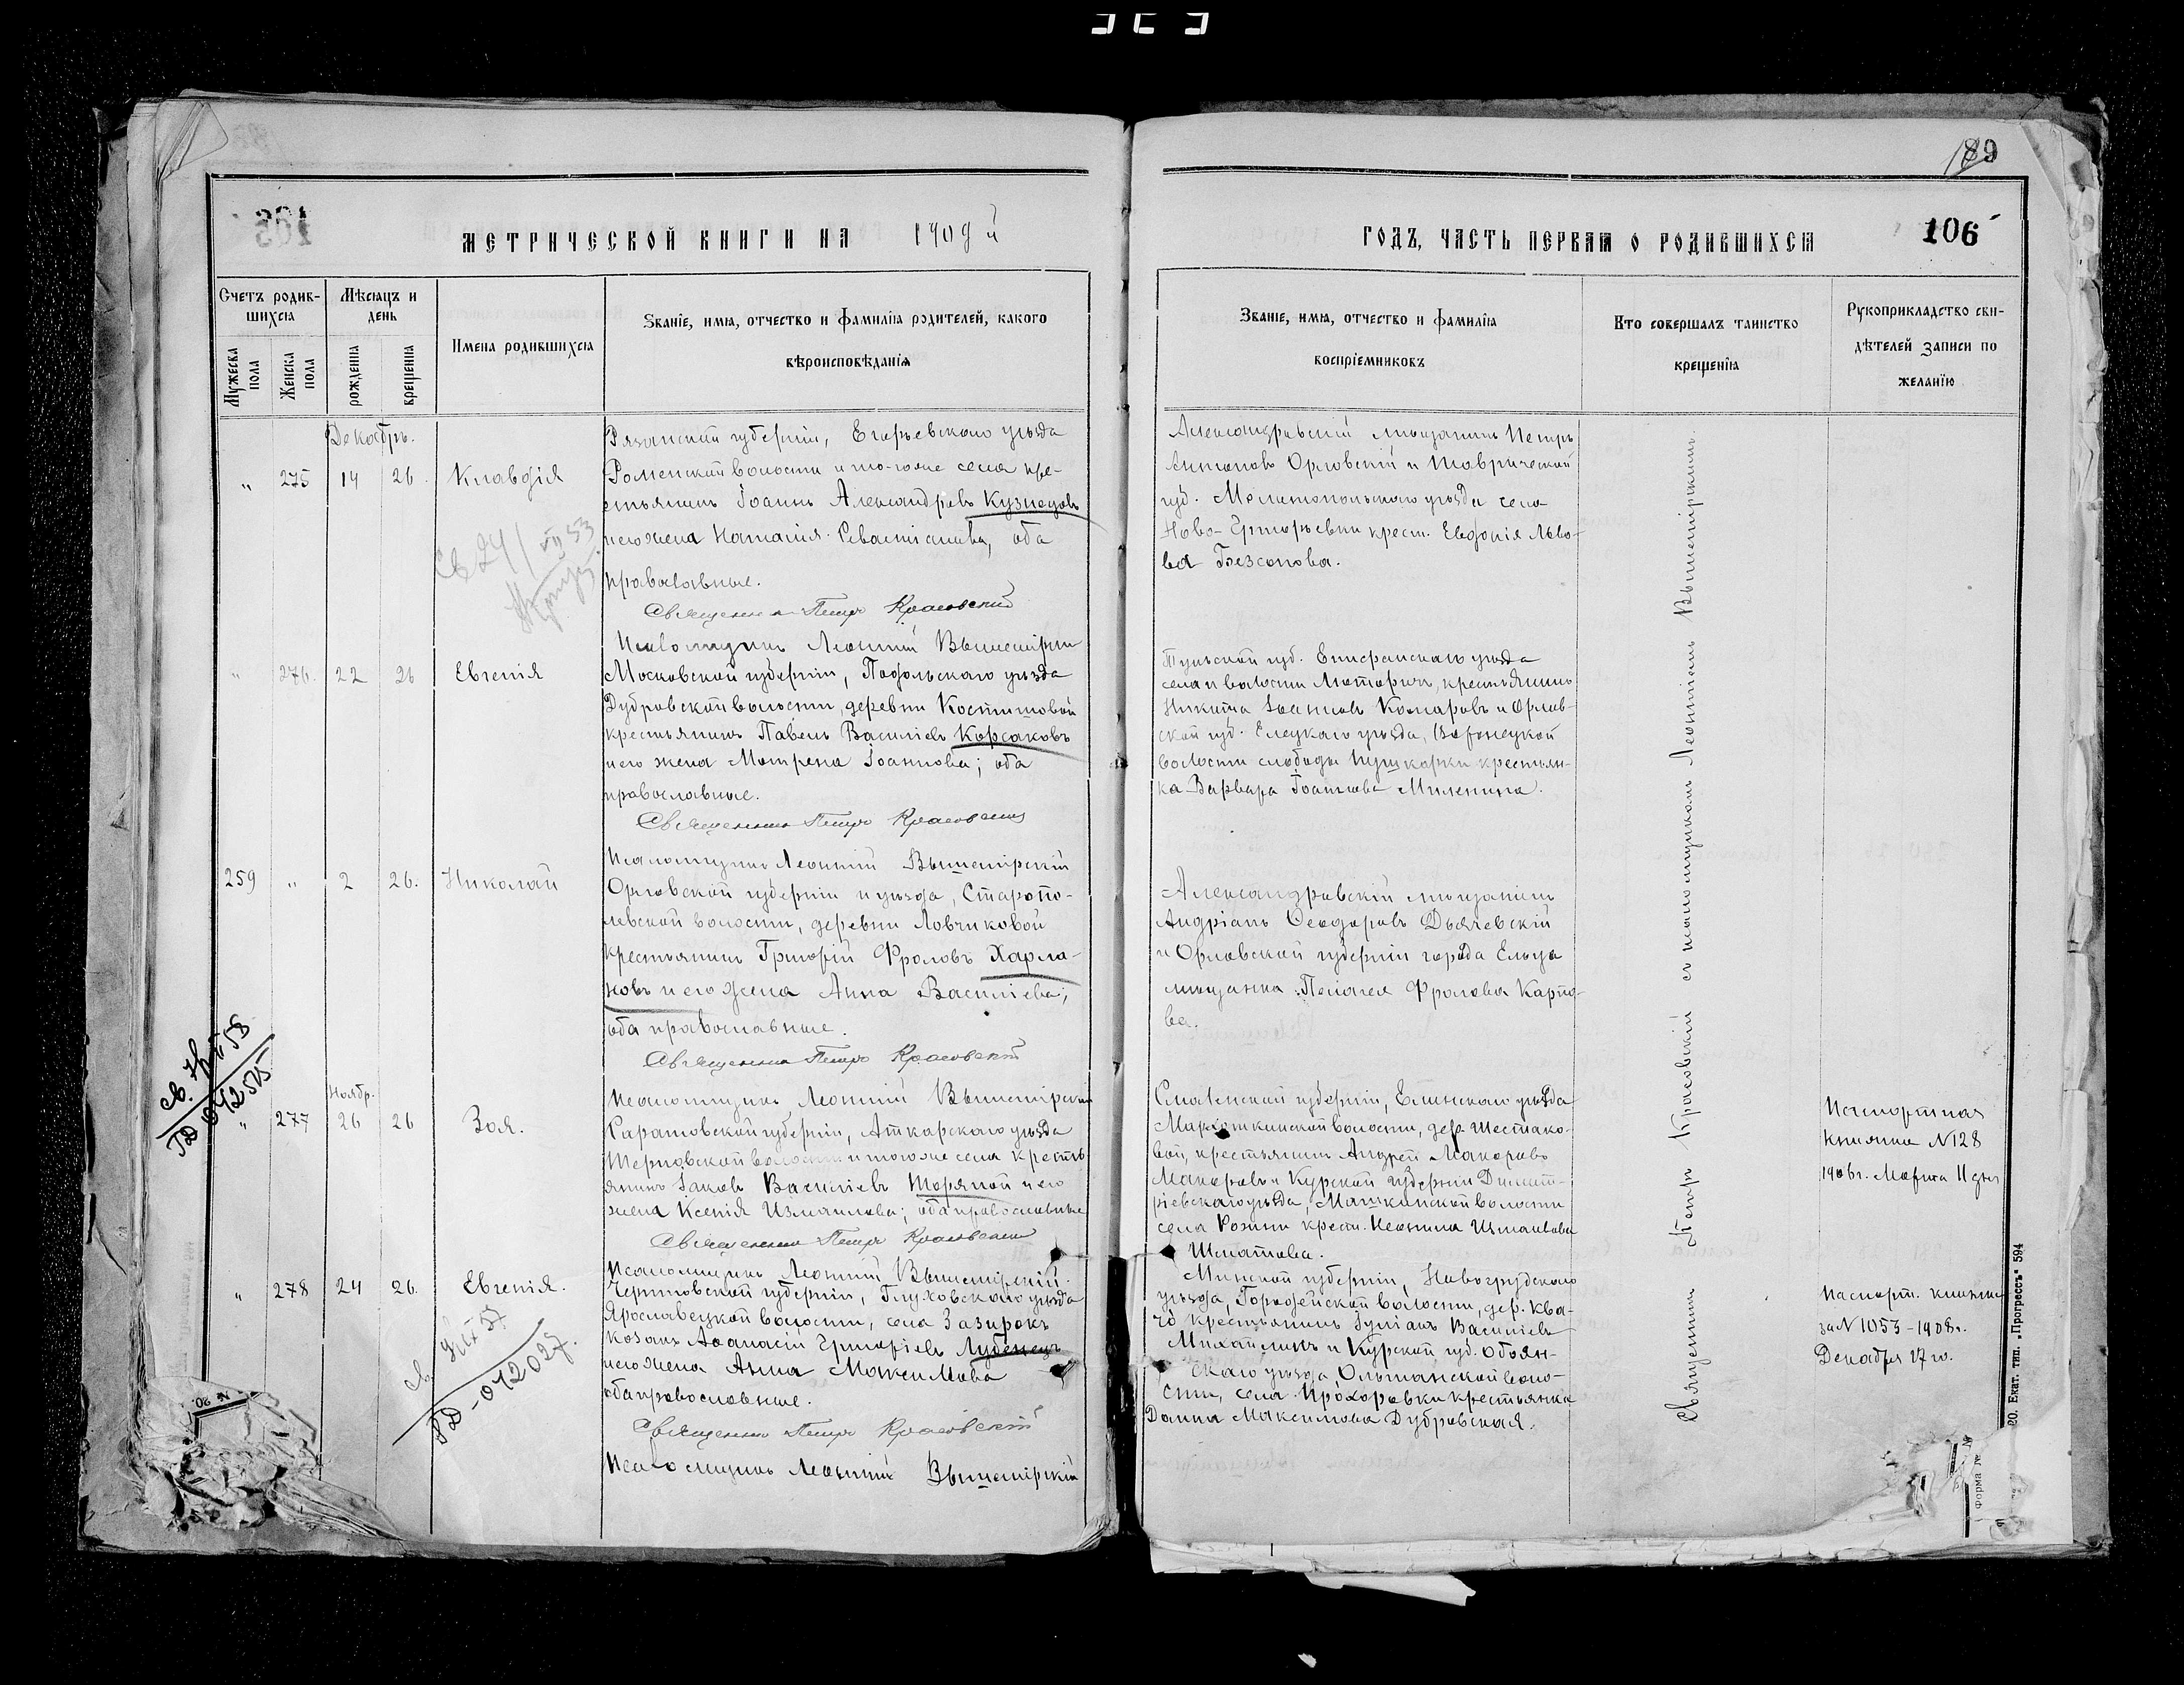 189
106
МЕТРИЧЕСКОЙ КНИГИ НА 1909й
ГОДЪ, ЧАСТЬ ПЕРВАЯ О РОДИВШИХСЯ
Счетъ родив-
шихся
Мужеска пола
Женска пола
Мѣсяцъ и
день
рожденїя
крещенїя
Имена родившихся
Званїе, имя, отчество и фамилїя родителей, какого
вѣроисповѣданїя
Званїе, имя, отчество и фамилїя
воспрїемниковъ
Кто совершалъ таинство
крещенїя
Рукоприкладство сви-
дѣтелей записи по
желанїю
Декабрь.
„ 275 14 26. Клавдія
Рязанской губерніи, Егорьевскаго уѣзда
Роменской волости и того-же села кре-
стьянинъ Іоаннъ Александровъ Кузнецовъ
и его жена Наталія Севастіанова, оба
православные.
Священникъ Петръ Красовскій
Псаломщикъ Леонтій Вышемірскій
Александровскій мѣщанинъ Петръ
Антоновъ Орловскій и Таврической
губ. Мелитопольскаго уѣзда села
Ново-Григорьевки крест. Евдокія Льво-
ва Безсонова.
„ 276. 22 26 Евгенія
Московской губерніи, Подольскаго уѣзда
Дубровской волости, деревни Костишовой
крестьянинъ Павелъ Василіевъ Корсаковъ
и его жена Матрена Іоаннова; оба
православные.
Священникъ Петръ Красовскій
Псаломщикъ Леонтій Вышемірскій
Тульской губ. Епифанскаго уѣзда
села и волости Люторичъ, крестьянинъ
Никита Іоанновъ Комаровъ и Орлов-
ской губ. Елецкаго уѣзда,
волости слободы Пушкарки крестьян-
ка Варвара Іоаннова Миленина.
259 „ 2 26. Николай
Орловской губерніи и уѣзда, Старопо-
левской волости, деревни Ловчиковой
крестьянинъ Григорій Фроловъ Харла-
новъ и его жена Анна Василіева;
оба православные.
Священникъ Петръ Красовскій
Псаломщикъ Леонтій Вышемірскій
Александровскій мѣщанинъ
Андріанъ Ѳеодоровъ Дьячевскій
и Орловской губерніи города Ельца
мѣщанка Пелагея Фролова Карпо-
ва.
Ноябр.
„ 277 26 26 Зоя.
Саратовской губерніи, Аткарскаго уѣзда
Терновской волости и того-же села кресть-
янинъ Іаковъ Василіевъ Торяной и его
жена Ксенія Измаилова; оба православные
Священникъ Петръ Красовскій
Псаломщикъ Леонтій Вышемірскій.
Смоленской губерніи, Елнинскаго уѣзда
Мархоткинской волости, дер. Шестако-
вой, крестьянинъ Андрей Макаровъ
Макаровъ и Курской губерніи Димит-
ріевскаго уѣзда, Машкинской волости
села крест. Неонила Измаилова
Шматова.
Паспортная
книжка №128
1906г. Марта 11 дня
„ 278 24 26. Евгенія.
Черниговской губерніи, Глуховскаго уѣзда
Ярославецкой волости, села Зазирокъ
козакъ Аѳанасій Григоріевъ Лубенецъ
и его жена Анна Максимова
оба православные.
Священникъ Петръ Красовскій
Псаломщикъ Леонтій Вышемірскій
Минской губерніи, Новогрудскаго
уѣзда, Городейской волости, дер. Ква-
чо крестьянинъ Іуліанъ Василіевъ
Михайлинъ и Курской губ. Обоян-
скаго уѣзда Ольшанской воло-
сти, села Прохоровки крестьянка
Домна Максимова Дубровская.
Паспорт. книжка
за №1053-1908г.
Декабря 17го.
Священникъ Петръ Красовскій съ псаломщикомъ Леонтіемъ Вышемірскимъ.
РД-012027.
20. Екат. тип. „Прогрессъ“ 594
Форма №